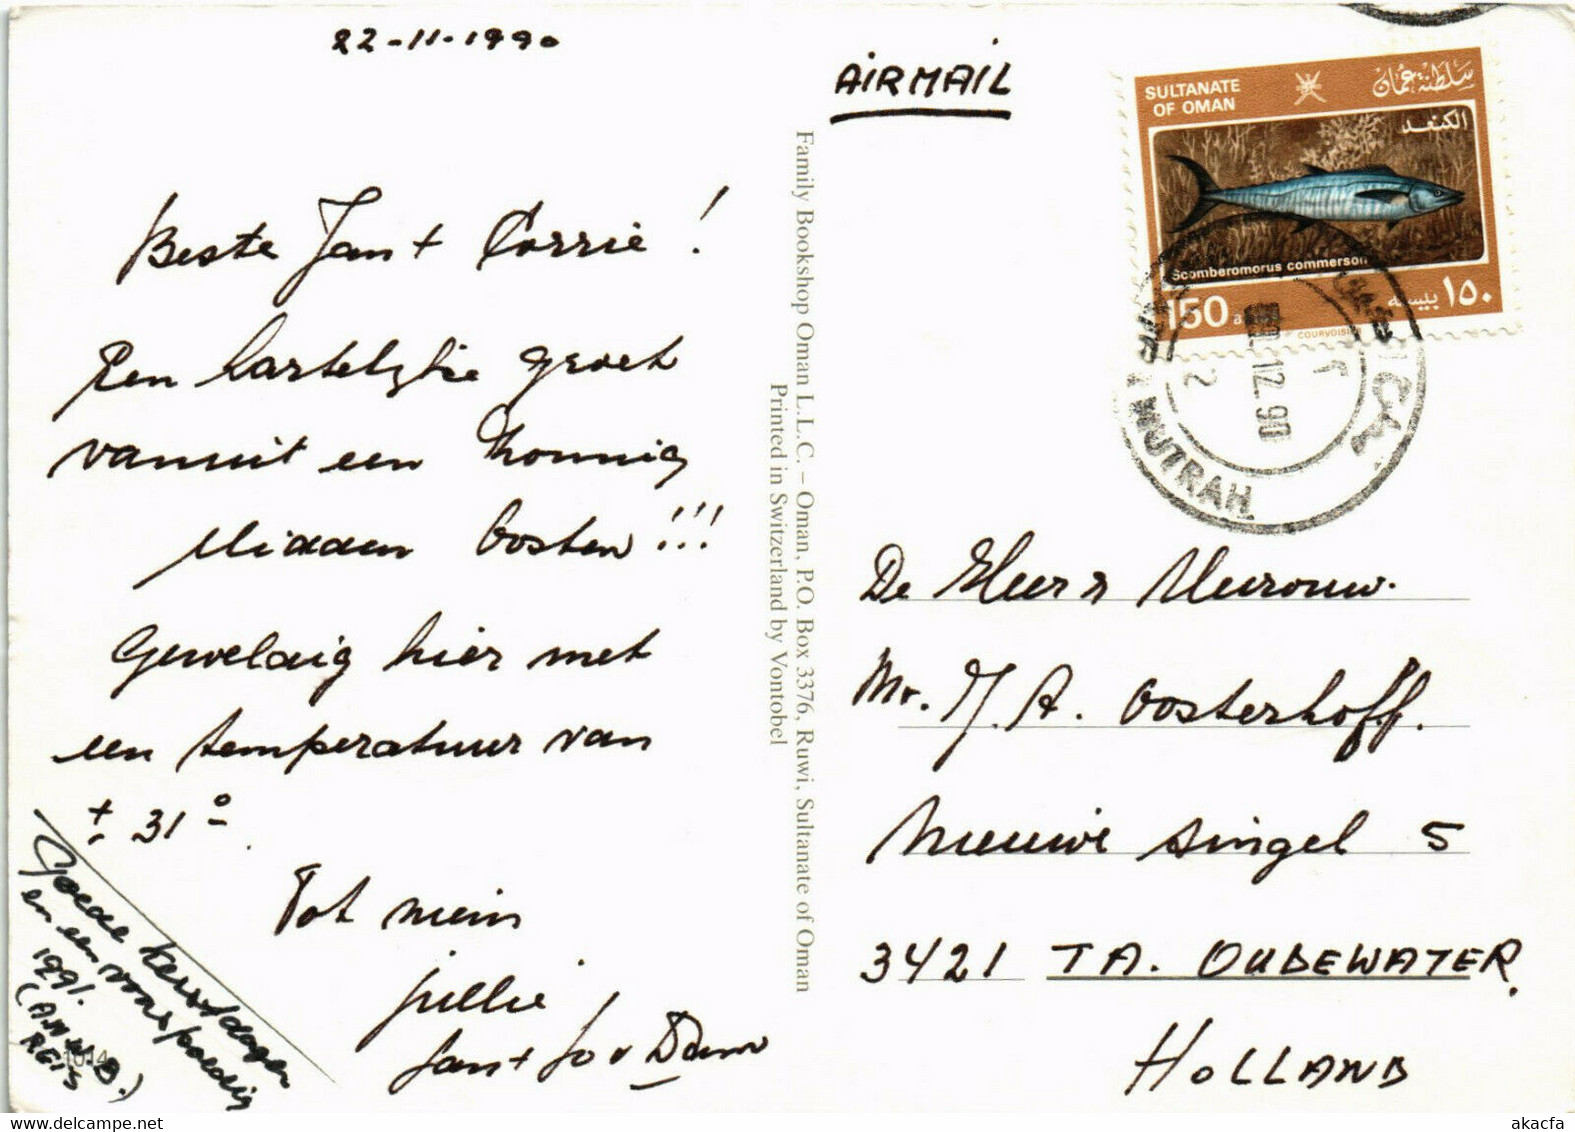 22-11-1990
Beste Jan + Corrie !
Een hartelijke groet
vanuit een zonnig
Midden Oosten !!!
Geweldig hier met
een temperatuur van
± 31°
Tot ziens
Jan + Jo v Dam
Goede kerstdagen
en een voorspoedig
1991.
(A.N.W.B.)
REIS
1014
Family Bookshop Oman L.L.C. – Oman, P.O. Box 3376, Ruwi, Sultanate of Oman
Printed in Switzerland by Vontobel
AIRMAIL
SULTANATE
OF OMAN
سلطنة عمان
الكنعد
Scomberomorus commerson
150
١٥٠ بيسه
COURVOISIER
12 90
2
MUTRAH
De Heer & Mevrouw.
Mr. J. A. Oosterhoff.
Nieuwe Singel 5
3421 TA. OUDEWATER.
HOLLAND
akacfa